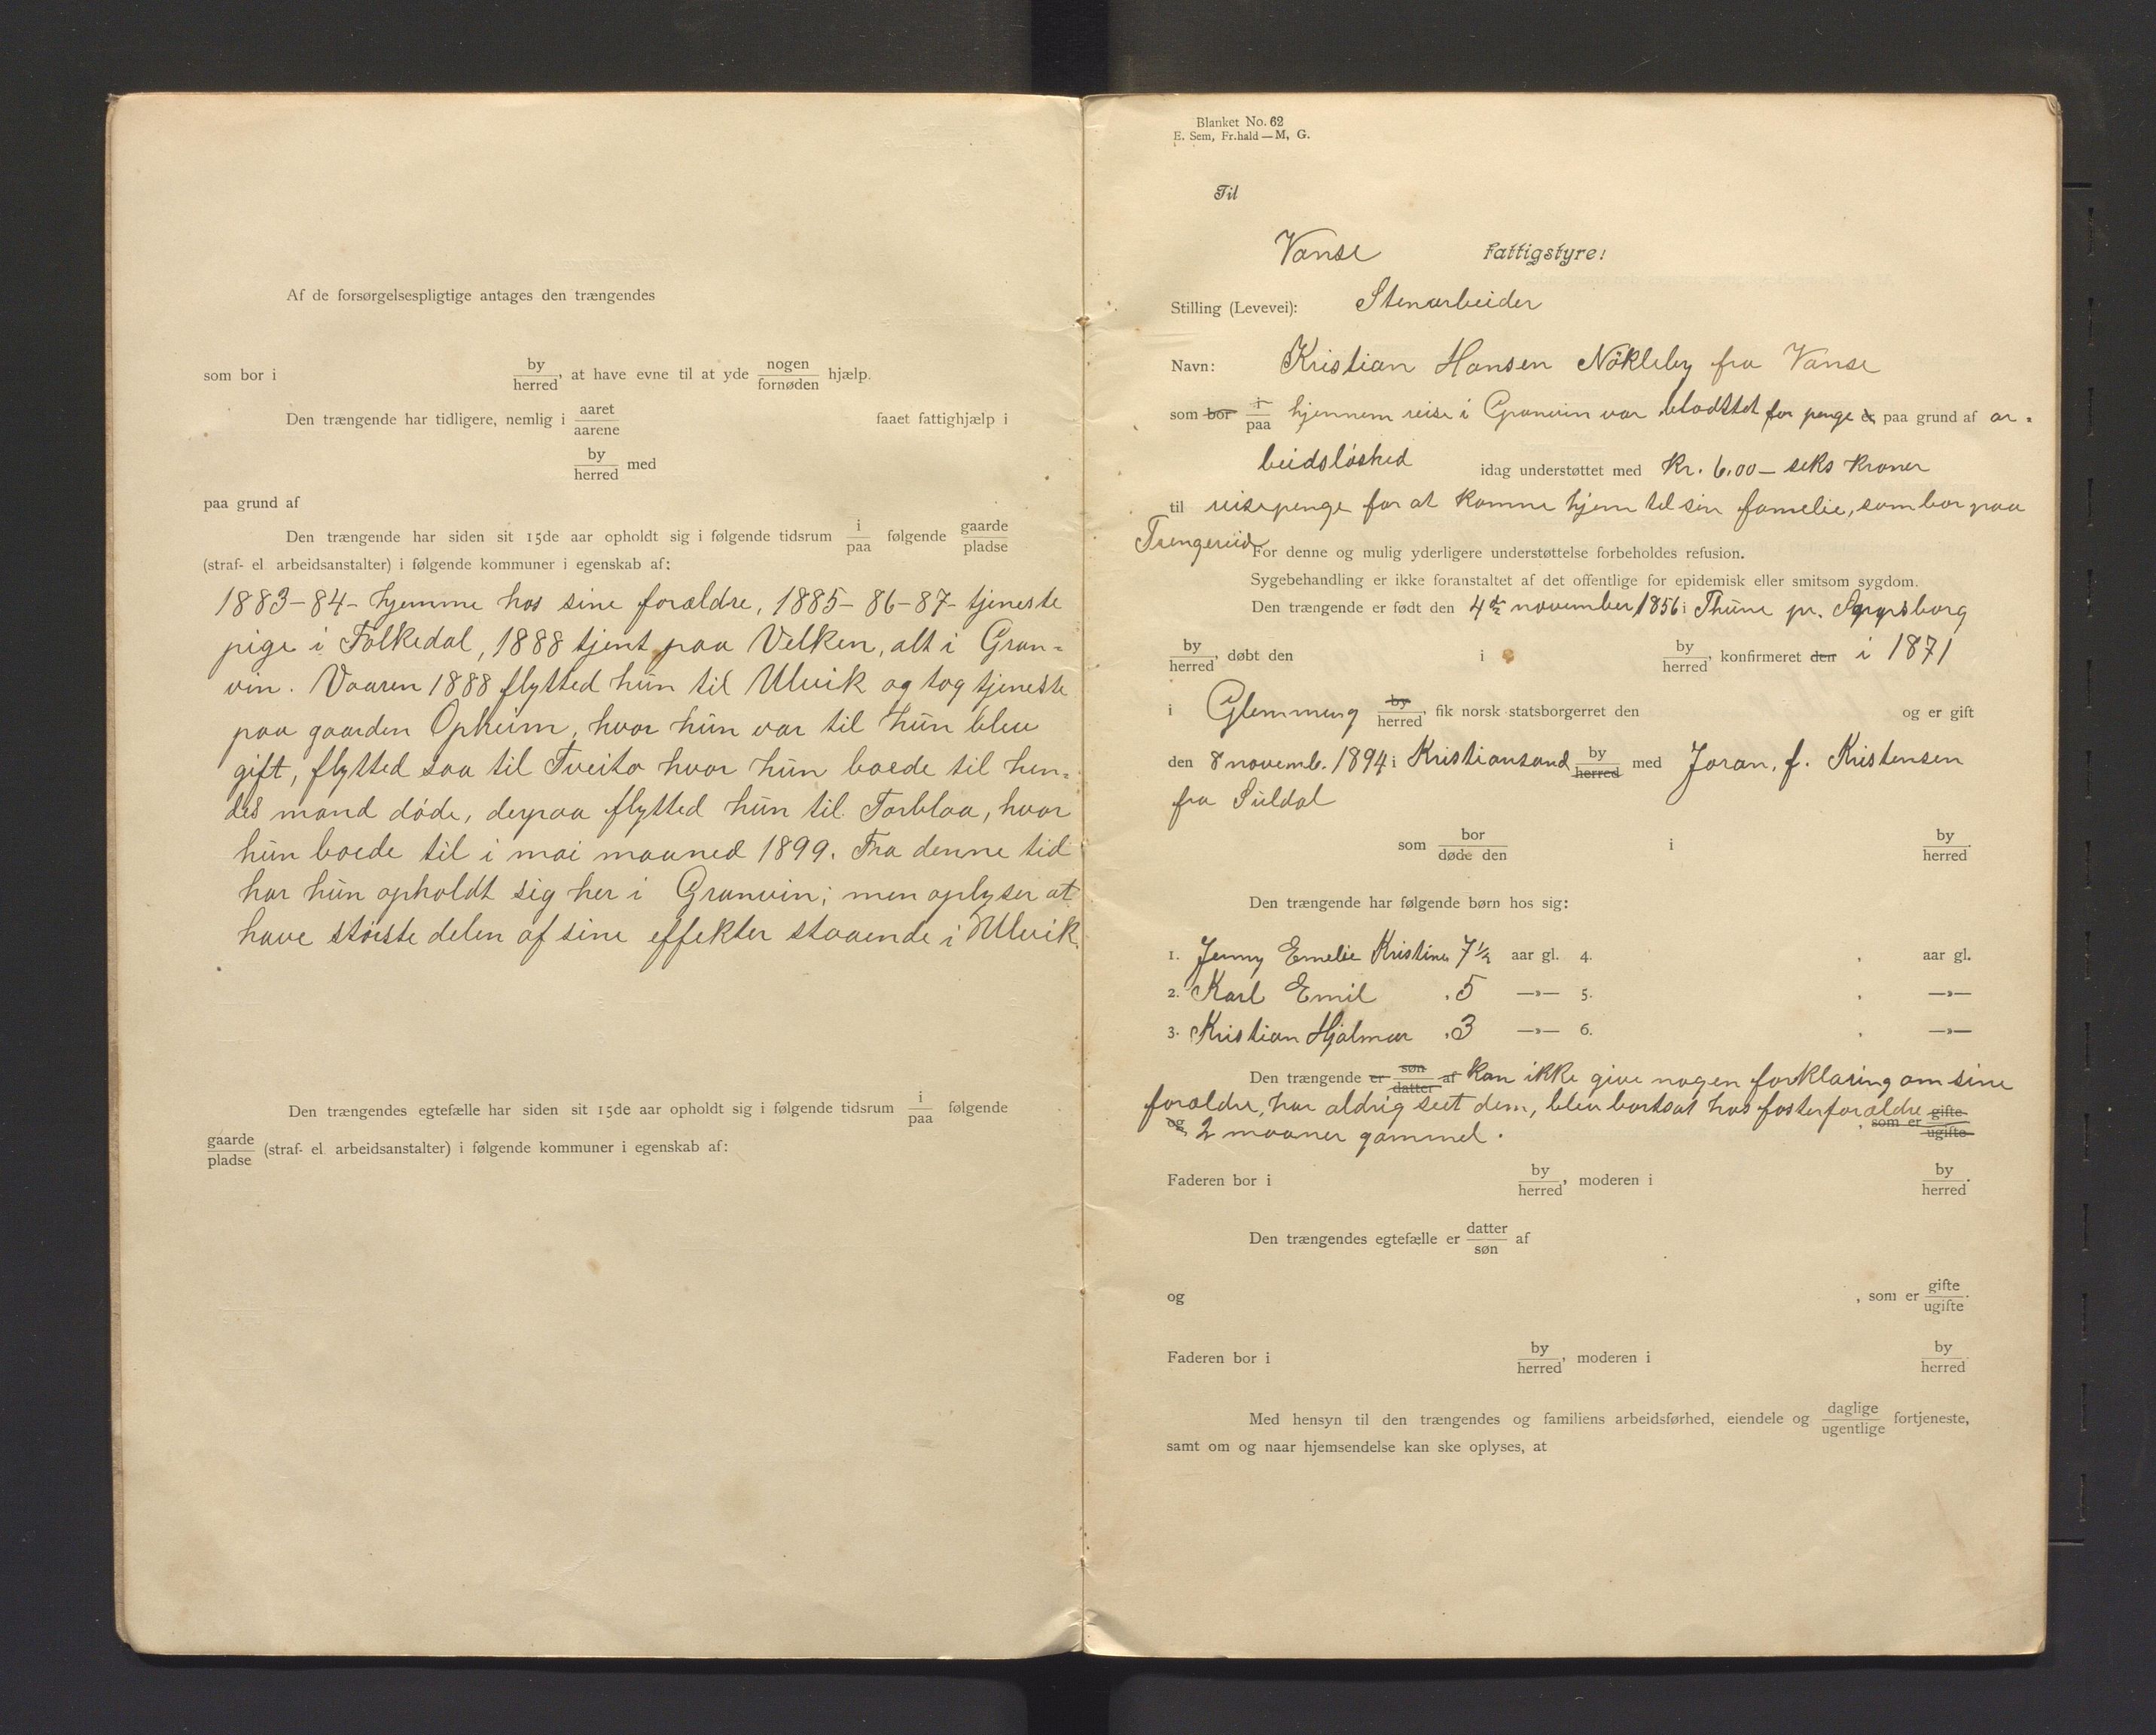 Af de forsørgelsespligtige antages den trængendes
som bor i by/herred, at have evne til at yde nogen/fornøden hjælp.
Den trængende har tidligere, nemlig i aaret/aarene faaet fattighjælp i
by/herred med
paa grund af
Den trængende har siden sit 15de aar opholdt sig i følgende tidsrum i/paa følgende gaarde/pladse
(straf- el arbeidsanstalter) i følgende kommuner i egenskab af:
1883-84- hjemme hos sine forældre, 1885-86-87- tjeneste
pige i Folkedal, 1888 tjent paa Velken, alt i Gran=
vin. Vaaren 1888 flytted hun til Ulvik og tog tjeneste
paa gaarden Opheim, hvor hun var til hun blev
gift, flytted saa til Tveito hvor hun boede til hen=
des mand døde, derpaa flytted hun til Torblaa, hvor
hun boede til i mai maaned 1899. Fra denne tid
har hun opholdt sig her i Granvin; men oplyser at
have største delen af sine effekter staaende i Ulvik.
Den trængendes egtefælle har siden sit 15de aar opholdt sig i følgende tidsrum i/paa følgende
gaarde/pladse (straf- el arbeidsanstalter) i følgende kommuner i egenskab af:
Blanket No. 62
E. Sem, Fr.hald — M, G.
Til
Vanse Fattigstyre!
Stilling (Levevei): Stenarbeider
Navn: Kristian Hansen Nökleby fra Vanse
som bor i/paa hjennem reise i Granvin var blodttet for penge er paa grund af ar=
beidsløshed idag understøttet med Kr. 6.00 — seks kroner
til reisepenge for at komme hjem til sin famelie, som bor paa
Trengereid
For denne og mulig yderligere understøttelse forbeholdes refusion.
Sygebehandling er ikke foranstaltet af det offentlige for epidemisk eller smitsom sygdom.
Den trængende er født den 4de november 1856 i Thune pr.
by/herred, døbt den i by/herred, konfirmeret den i 1871
i Glemming by/herred, fik norsk statsborgerret den og er gift
den 8 novemb. 1894 i Kristiansand by/herred med Joran, f. Kristensen
fra Suldal
som bor/døde den i by/herred.
Den trængende har følgende børn hos sig:
1. Jenny Emelie Kristine 7½ aar gl. 4. , aar gl.
2. Karl Emil , 5 —»— 5. , —»—
3. Kristian Hjalmar , 3 —»— 6. , —»—
Den trængende er søn/datter af kan ikke give nogen forklaring om sine
forældre, har aldrig seet dem, blev bortsat hos fosterforældre gifte
og 2 maaner gammel. , som er ugifte
Faderen bor i by/herred, moderen i by/herred.
Den trængendes egtefælle er datter/søn af
og , som er gifte/ugifte.
Faderen bor i by/herred, moderen i by/herred
Med hensyn til den trængendes og familiens arbeidsførhed, eiendele og daglige/ugentlige fortjeneste,
samt om og naar hjemsendelse kan ske oplyses, at